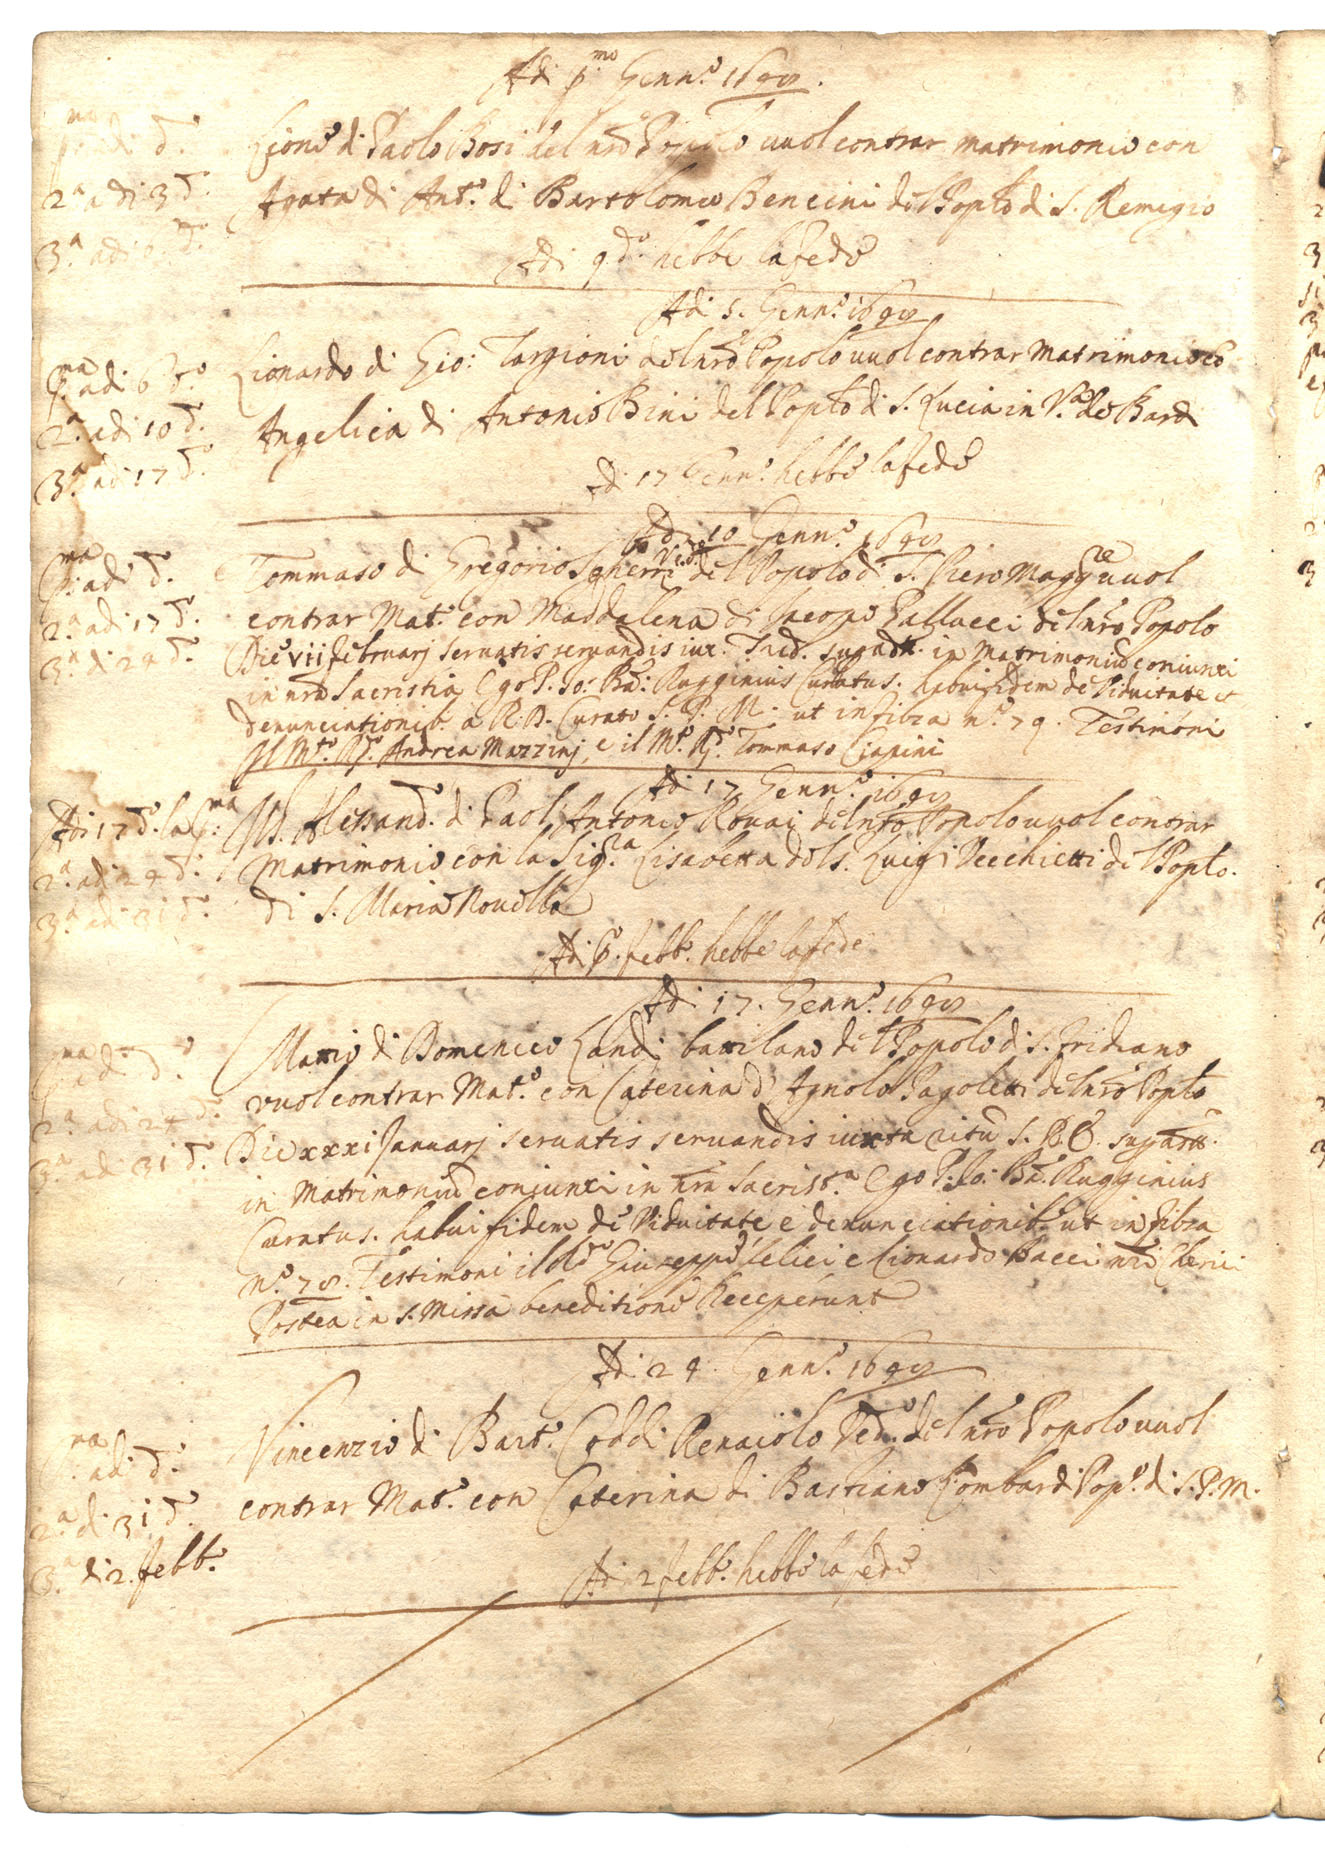 Adi p.mo Genn.o 1698.
p.ma adi d.o
2.a adi 3 d.o
3.a adi 6 d.o
Lione di Paolo Bosi del nro Popolo vuol contrar matrimonio con
Agata di Ant.o di Bartolomeo Bencini del Poplo di S. Remigio
Adi 9 d.o hebbe la fede
Adi 5. Genn.o 1698
p.ma adi 6 d.o
2.a adi 10 d.o
3.a adi 17 d.o
Lionardo di Gio: Targioni del nro Popolo vuol contrar Matrimonio co
Angelica di Antonio Bini del Poplo di S. Lucia in V.a de Bardi
Adi 17 Genn.o hebbe la fede
Adi 10 Genn.o 1698
p.ma adi d.o
2.a adi 17 d.o
3.a di 24 d.o
Tommaso di Gregorio Sgherri Ved.o del Popolo di S. Piero Magg.re vuol
contrar Mat.o con Maddalena di Iacopo Pallucci del nro Popolo
Die vii februarj servatis servandis iux. Trid. sup.adtt. in Matrimoniũ coniunxi
in nrã Sacristia Ego P. Jo: Ba: Rugginius Curatus. habui fidem de Viduitate et
denunciationib. a R. D. Curato S. P. M: ut in filza n.o 79. Testimoni
Il M.to R.do Andrea Mazzinj, e il M.o R.do Tommaso Ciapini
Adi 17 Genn.o 1698
Adi 17 d.o la p.ma
2.a adi 24 d.o
3.a adi 31 d.o
Il S. Alessand.o di Paol Antonio Rovai del nro Popolo vuol contrar
Matrimonio con la Sig.ra Lisabetta del S. Luigi Vecchietti del Poplo.
di S. Maria Novella
Adi p.o febb.o hebbe la fede
Adi 17. Genn.o 1698
p.ma adi d.o
2.a adi 24 d.o
3.a adi 31 d.o
Matteo di Domenico Landi battilano del Popolo di S. Fridiano
vuol contrar Mat.o con Caterina d'Agnolo Pagoletti del nro Poplo
Die xxxi Januarj servatis servandis iuxta ritũ S. R. E. supadtt.
in Matrimoniũ coniunxi in nrã Sacrist.a Ego P: Jo: Ba. Rugginius
Curatus. habui fidem de Viduitate e denunciationib. ut in filza
n.o 78. Testimoni il R.do Giuseppe Felici e Lionardo Bacci nri Cherici
Postea in S. Missa beneditione Receperunt
Adi 24. Genn.o 1698
p.ma adi d.o
2.a di 31 d.o
3.a di 2. febb.o
Vincenzio di Bart.o Coddi Renaiolo Ved.o del nro Popolo vuol
contrar Mat.o con Caterina di Bastiano Lombardi Pop.o di S. P. M.
Adi 2 febb.o hebbe la fede